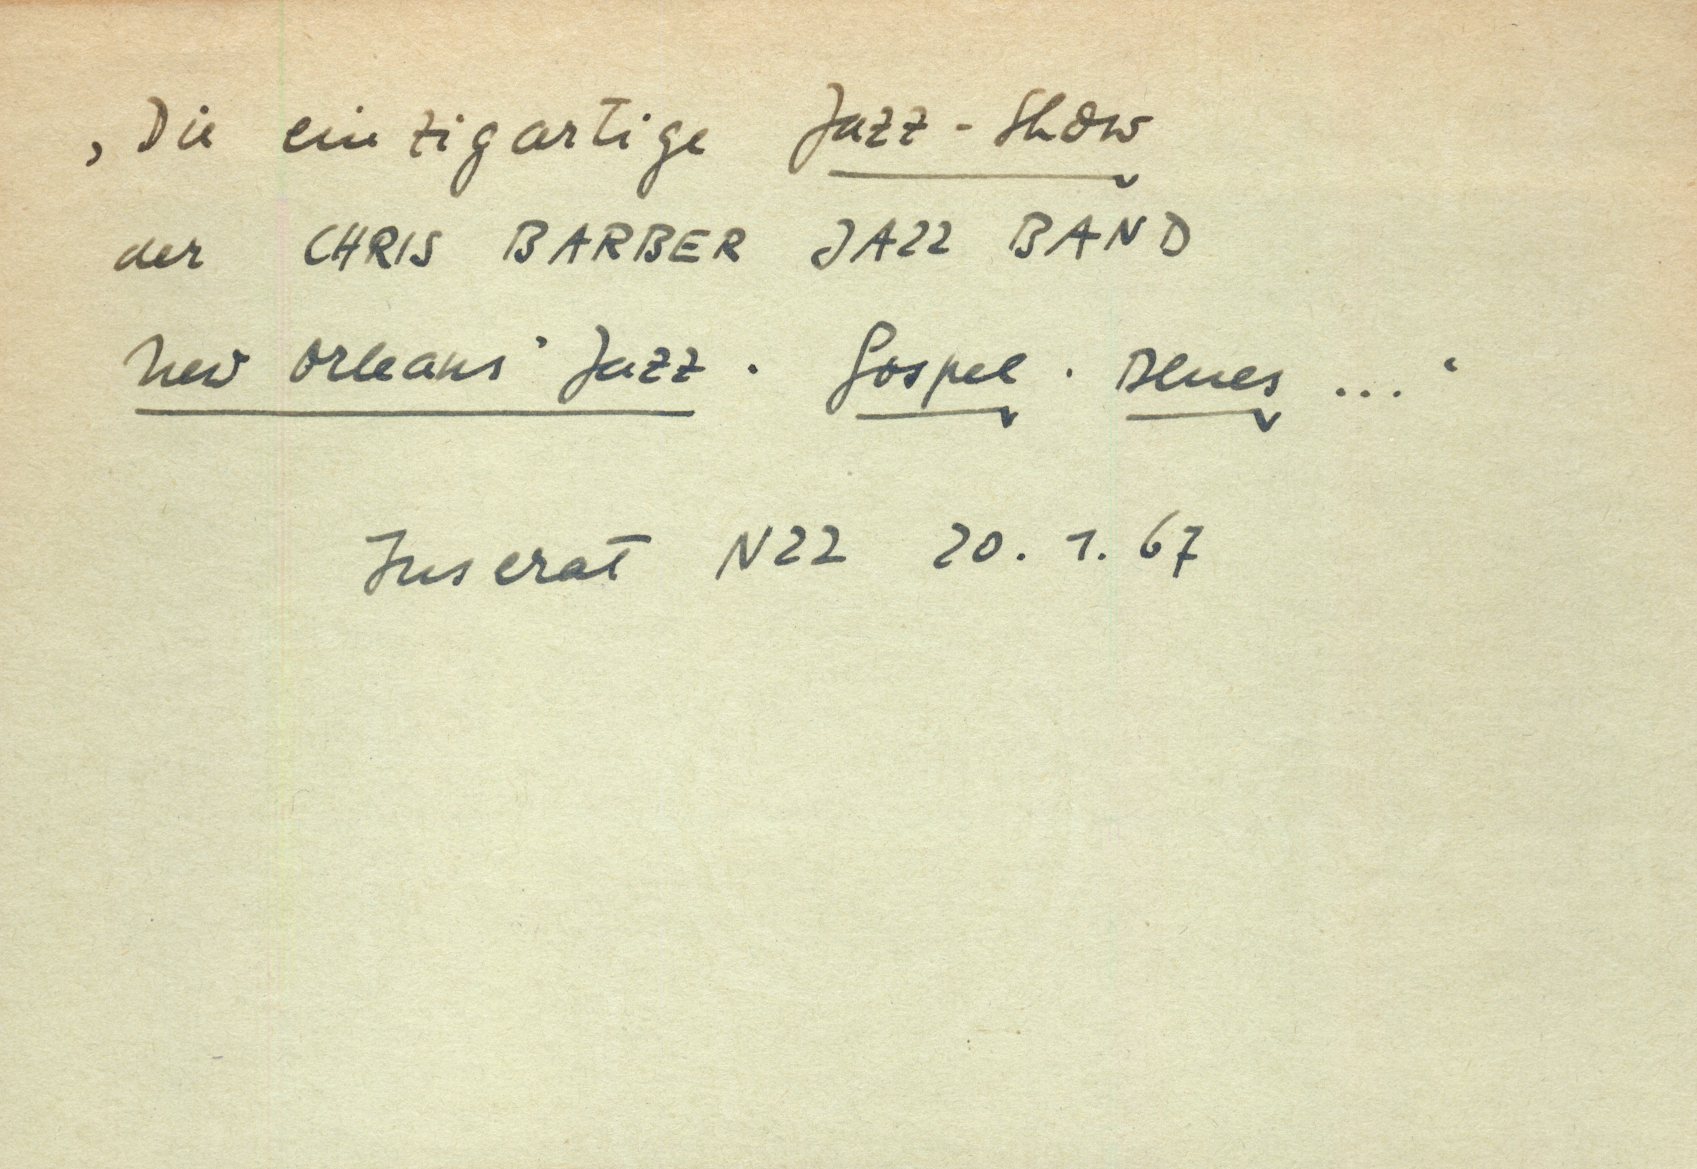 ‚Die einzigartige Jazz-Show
der CHRIS BARBER JAZZ BAND
New Orleans' Jazz · Gospel · Blues ...'
Inserat NZZ 20.1.67